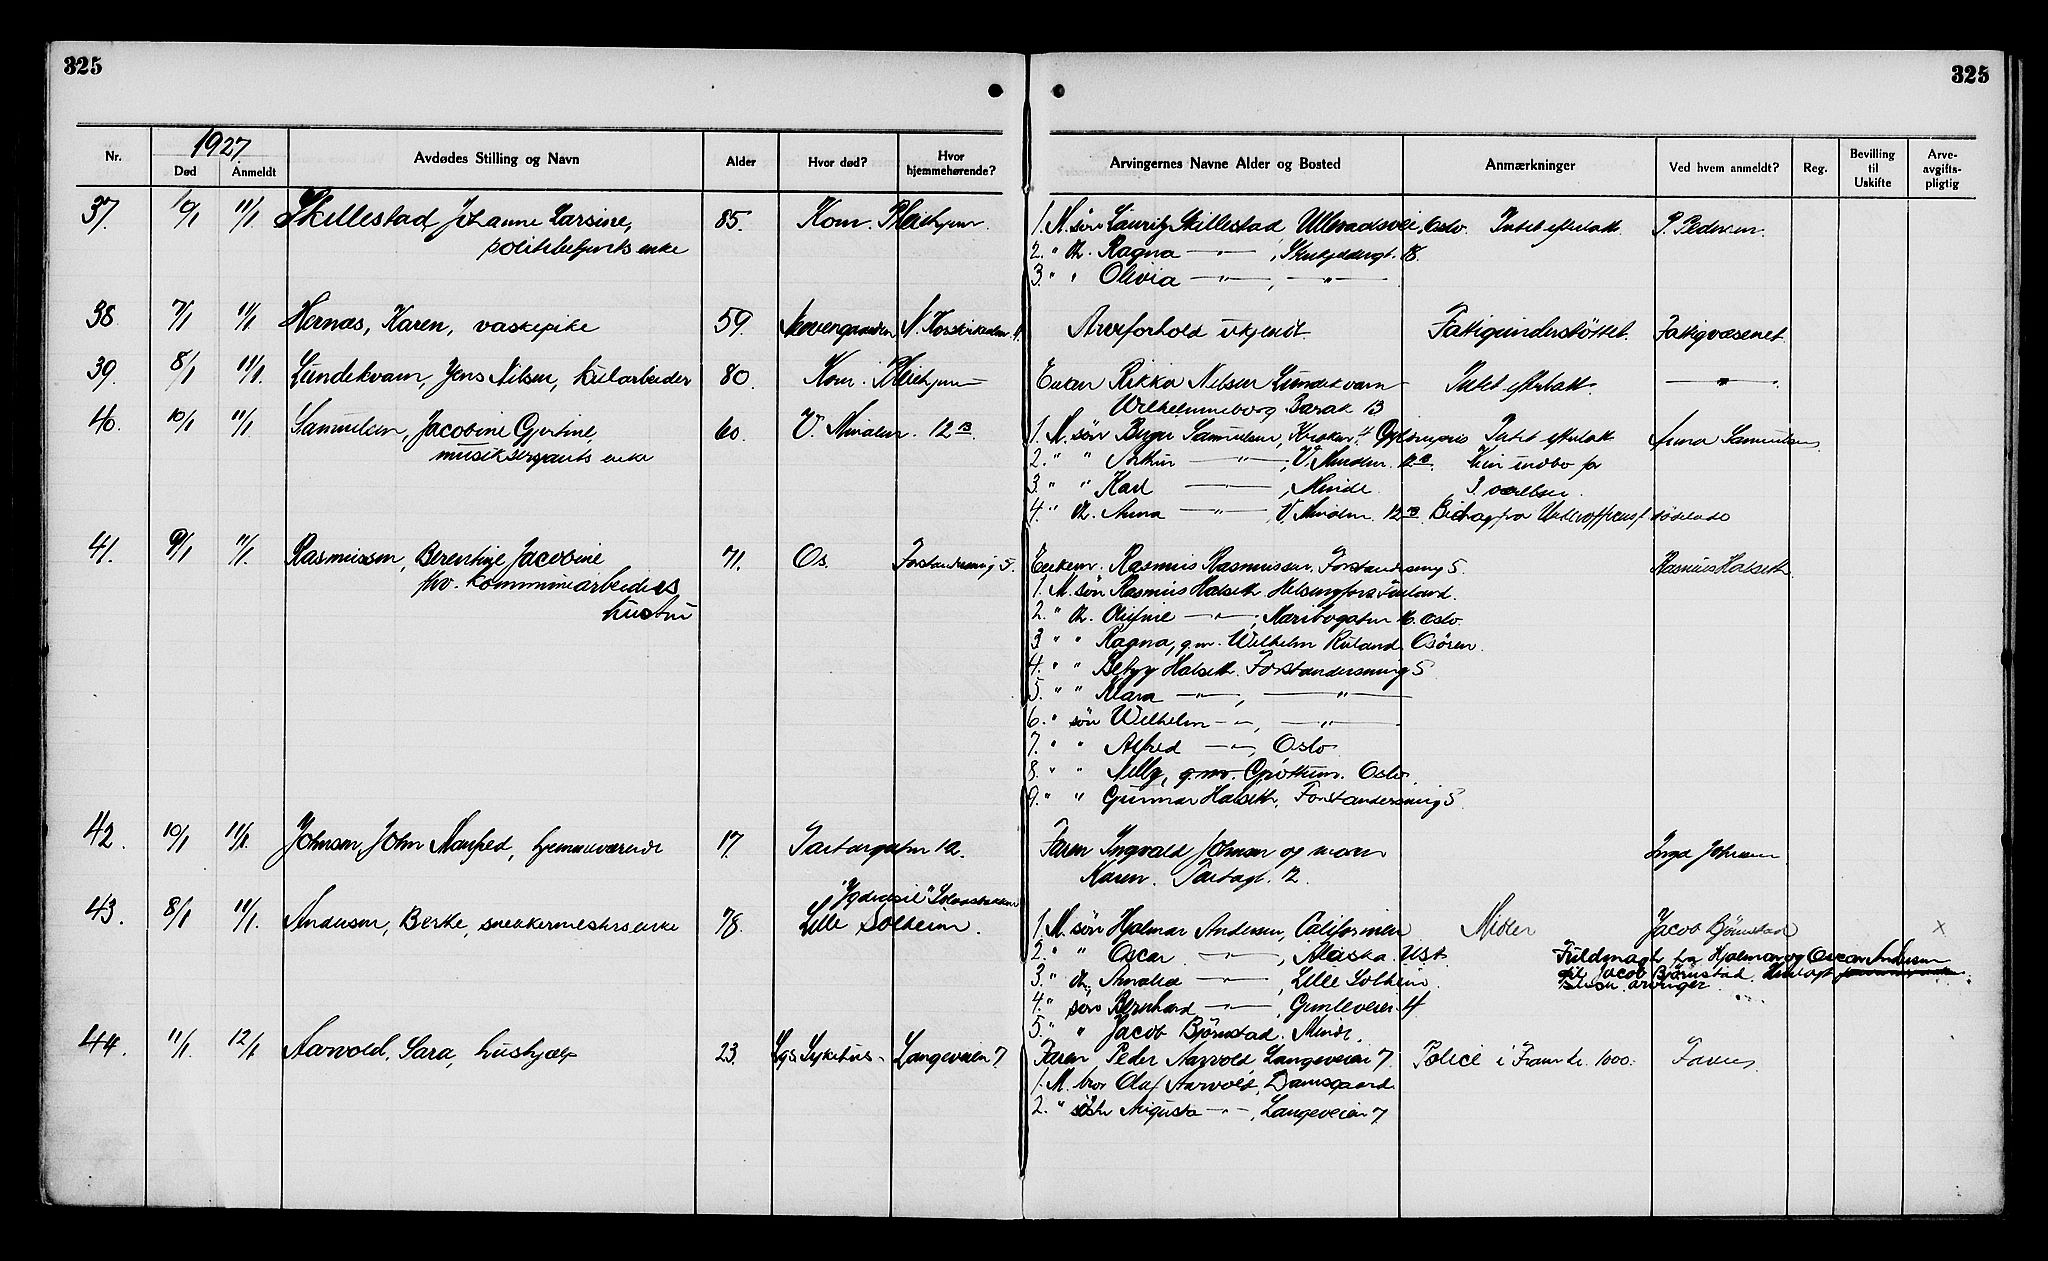 325
325
1927
Nr. Død Anmeldt Avdødes Stilling og Navn Alder Hvor død? Hvor hjemmehørende? Arvingernes Navne Alder og Bosted Anmærkninger Ved hvem anmeldt? Reg. Bevilling til Uskifte Arveavgiftspligtig
37. 10/1 11/1. Skillestad Johanne Larsine, 85. Kom. Pleiehjem. 1. M. sön Lauritz Skillestad Ullevaalsvei, Oslo. Intet efterlatt. P. Pedersen.
enke 2. " dt. Ragna —"— , 18.
3. " " Olivia —"—, —"—
38 7/1 11/1 Hernæs, Karen, vaskepike 59. N. Korskirkealm. Arveforhold ukjendt. Fattigunderstöttet. Fattigvæsenet
39. 8/1 11/1. Lundekvam, Jens Nilsen, 80. Kom. Pleiehjem — Enken Rikka Nilsen Lundekvam Intet efterlatt. —"—.
Wilhelmineborg Barak 13
40. 10/1 11/1. Samuelsen, Jacobine Gjertine, 60. V. Muralm. 12 B. 1. M. sön Birger Samuelsen, Intet efterlatt Anna Samuelsen
musiksergeants enke 2. " " Arthur —"—, V. Muralm. 12 B. indbo for
3. " " Karl —"—, Minde. 3 værelser.
4. " dt. Anna —"— V. Muralm. 12 B Bidrag fra
41. 9/1 11/1. Rasmussen, Berentine Jacobine 71. Os. Forstandersmug 5. Enkem. Rasmus Rasmussen, Forstandersmug 5. Rasmus Halseth.
fhv. kommunearbeiders 1. M. sön Rasmus Halseth Helsingfors Finland.
hustru 2. " dt. Olufine —"—, Maribogaten 16. Oslo.
3 " " Ragna, g.m. Wilhelm Ruland, Osören.
4. " " Betzy Halseth. Forstandersmug 5
5. " " Klara —"—, —"—
6. " sön Wilhelm —"—, —"—
7. " " Alfred —"—, Oslo.
8. " " Nelly, g.m. Gjöttum. Oslo.
9. " " Gunnar Halseth, Forstandersmug 5.
42. 10/1 11/1. Johnsen, John Manfred, hjemmeværende 17. Tartargaten 12. Faren Ingvald Johnsen og moren Ingv. Johnsen
Karen. Tartargt. 12.
43. 8/1 11/1. Andersen, Berthe, snekkermesters enke 78. "Ygdrasil"
Lille Solheim. 1. M. sön Hjalmar Andersen, Californien Midler Jacob Björnstad x
2. " " Oscar —"—, Alaska. USA. Fuldmagt fra Hjalmar og Oscar Andersen
3. " dt. Amalie —"—, Lille Solheim. til Jacob Björnstad.
4. " sön Bernhard —"—, Gimleveien 4 arvinger
5. " " Jacob Björnstad. Minde.
44. 11/1. 12/1 Aarvold, Sara, hushjælp 23. Sykehus — Langeveien 7. Faren Peder Aarvold Langeveien 7. Police i Fram kr. 1000. Faren.
1. M. bror Olaf Aarvold, Damsgaard
2. " söster Augusta —"—, Langeveien 7